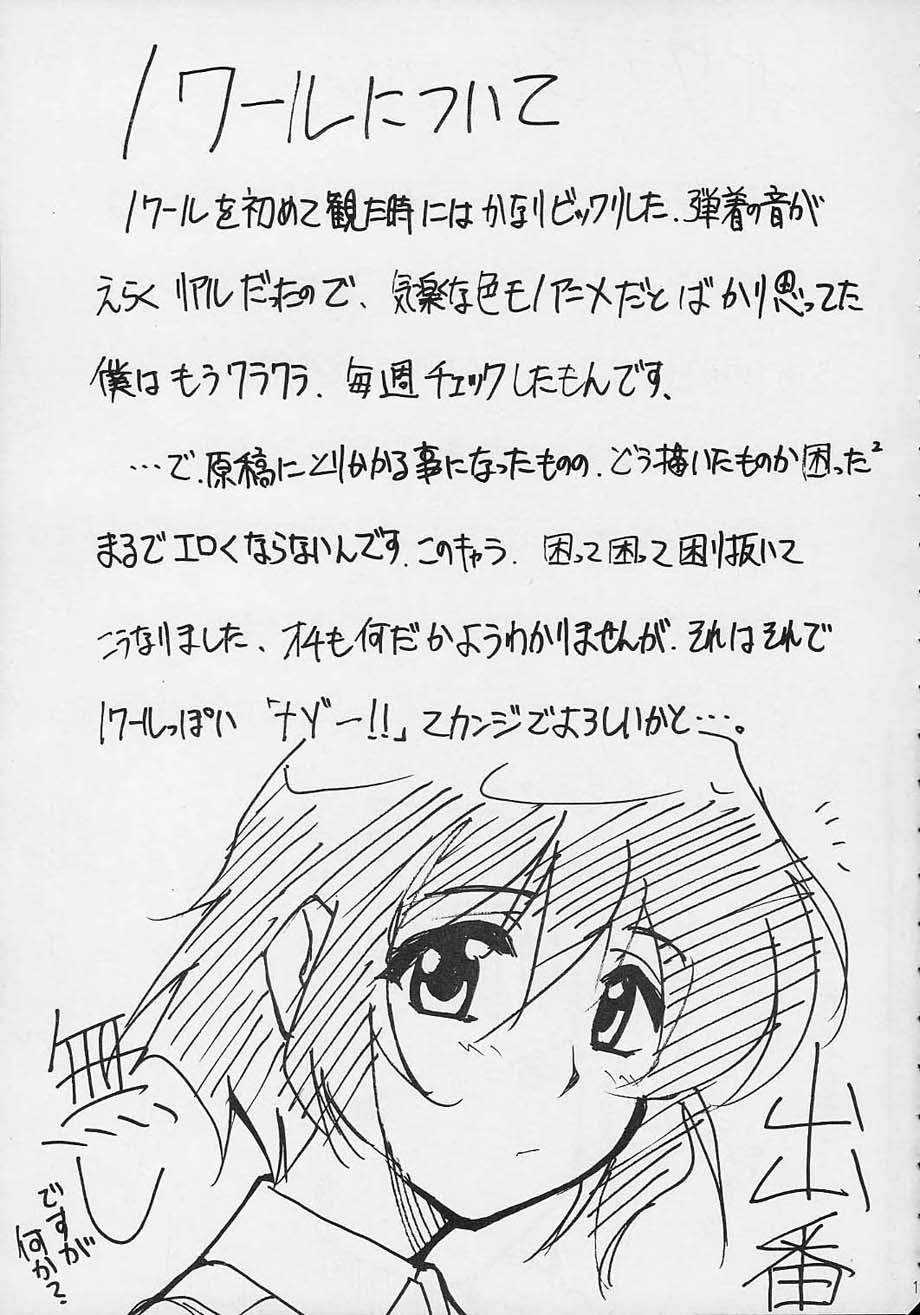 ノワールについて
ノワールを初めて観た時にはかなりビックリした、弾着の音が
えらくリアルだったので、気楽な色モノアニメだとばかり思ってた
僕はもうクラクラ、毎週チェックしたもんです、
…で、原稿にとりかかる事になったものの、どう描いたものか困った²
まるでエロくならないんです、このきゃら、困って困って困り抜いて
こうなりました、オチも何だかようわかりませんが、それはそれで
ノワールっぽい「ナゾー!!」てカンジでよろしいかと…。
出番
無
ですが
何か?